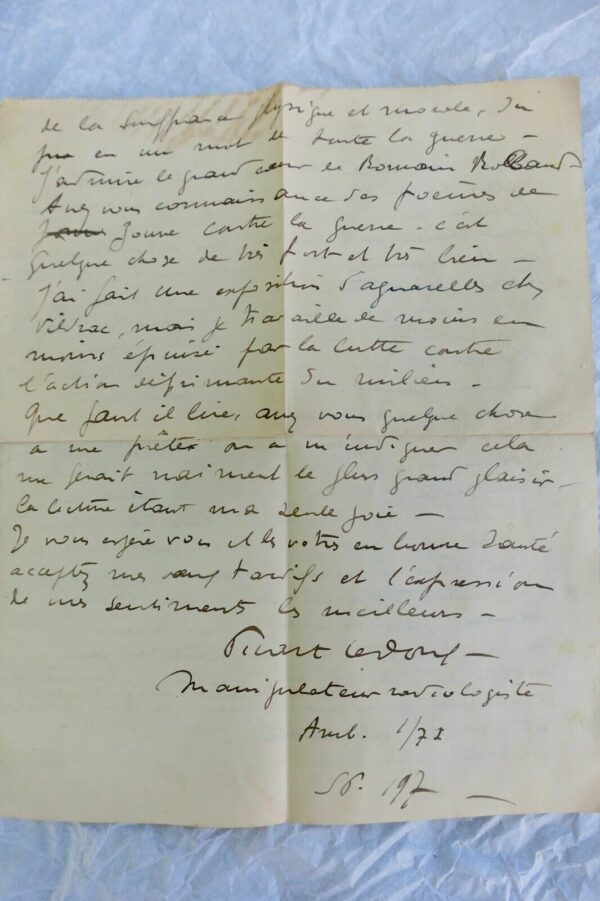 de la souffrance physique et morale, du
feu en un mot de toute la guerre –
J'admire le grand cœur de Romain Rolland –
Avez vous connaissance des poèmes de
Jouve contre la guerre. c'est
quelque chose de très fort et très bien –
J'ai fait une exposition d'aquarelles chez
Vildrac, mais je travaille de moins en
moins épuisé par la lutte contre
l'action déprimante du milieu –
Que faut il lire, avez vous quelque chose
a me prêter ou a m'indiquer cela
me ferait vraiment le plus grand plaisir –
la lecture étant ma seule joie –
Je vous espère vous et les votres en bonne santé
acceptez mes vœux tardifs et l'expression
de mes sentiments les meilleurs –
Picart Ledoux –
Manipulateur radiologiste
Amb. 1/71
SP. 197 –